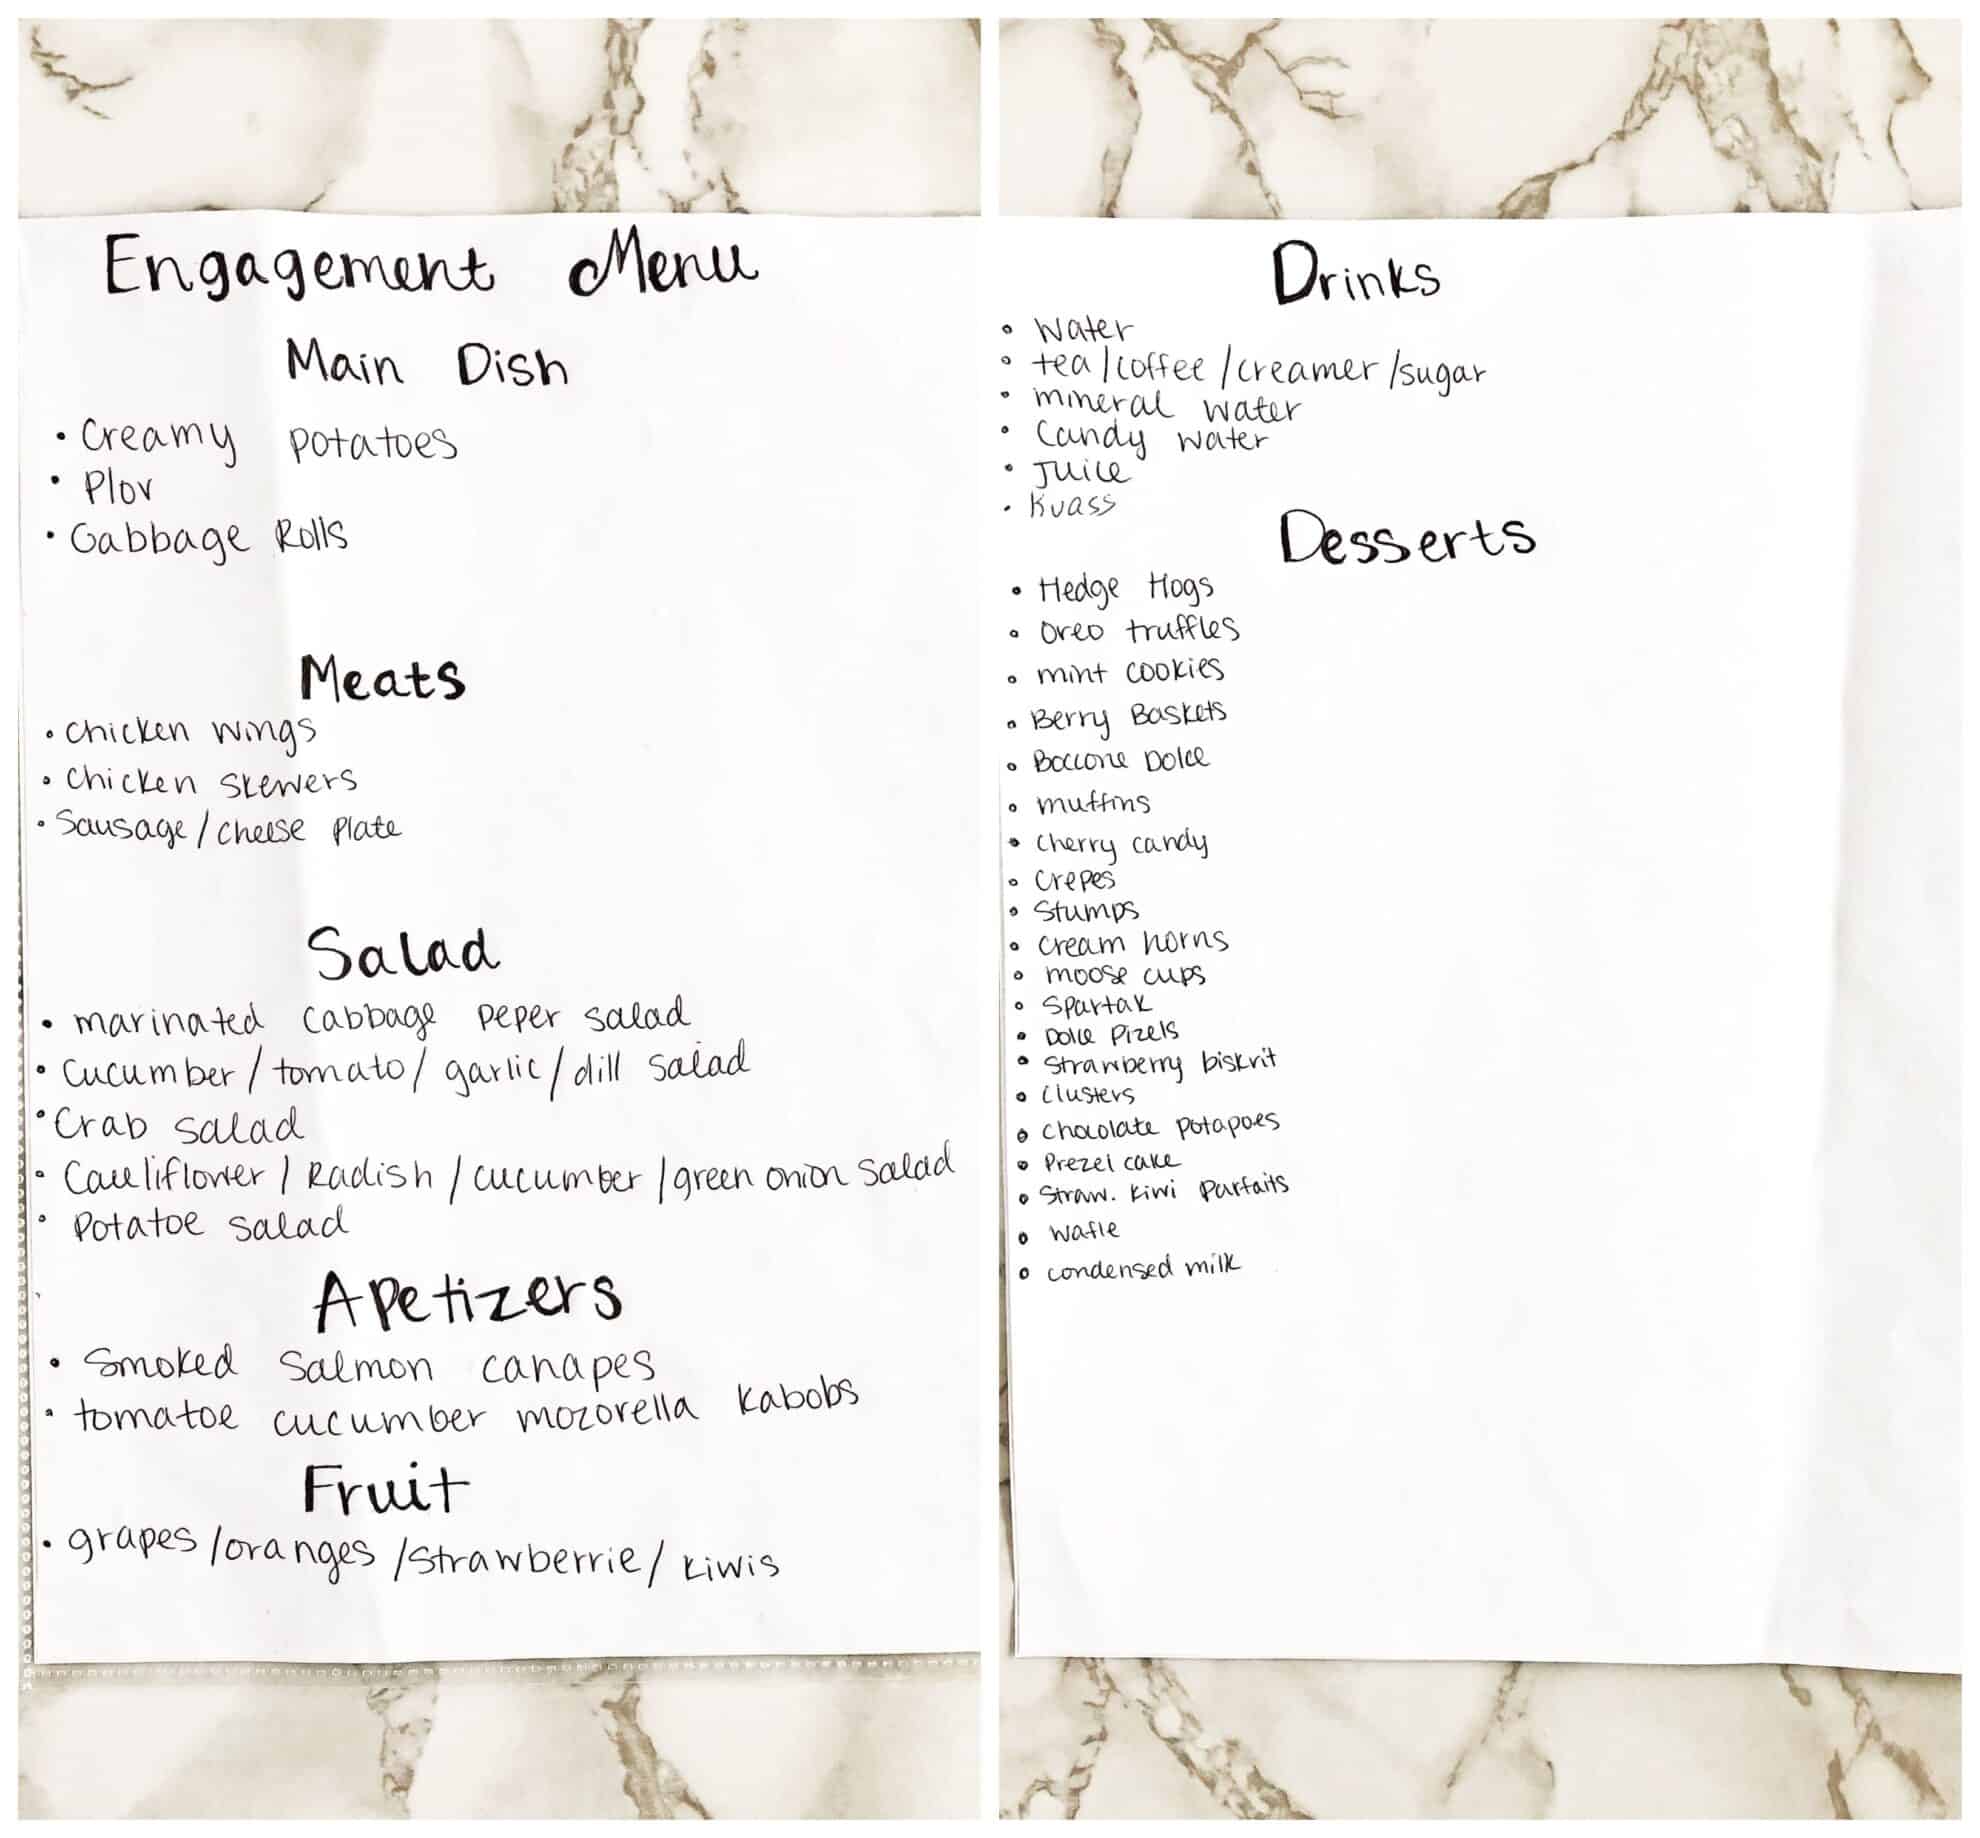 Engagement Menu
Main Dish
• Creamy potatoes
• Plov
• Gabbage Rolls
Meats
• chicken wings
• chicken skewers
• Sausage/cheese plate
Salad
• marinated cabbage peper salad
• cucumber/tomato/garlic/dill salad
• Crab salad
• Cauliflower/Radish/cucumber/green onion salad
• potatoe salad
Apetizers
• Smoked Salmon canapes
• tomatoe cucumber mozorella kabobs
Fruit
• grapes/oranges/strawberrie/kiwis
Drinks
• water
• tea/coffee/creamer/sugar
• mineral water
• Candy water
• Juice
• Kvass
Desserts
• Hedge Hogs
• Oreo truffles
• mint cookies
• Berry Baskets
• Boccone Dolce
• muffins
• cherry candy
• crepes
• Stumps
• cream horns
• moose cups
• Spartak
• Dolce Pizels
• Strawberry biskvit
• Clusters
• chocolate potapoes
• Prezel cake
• Straw. kiwi parfaits
• wafle
• condensed milk